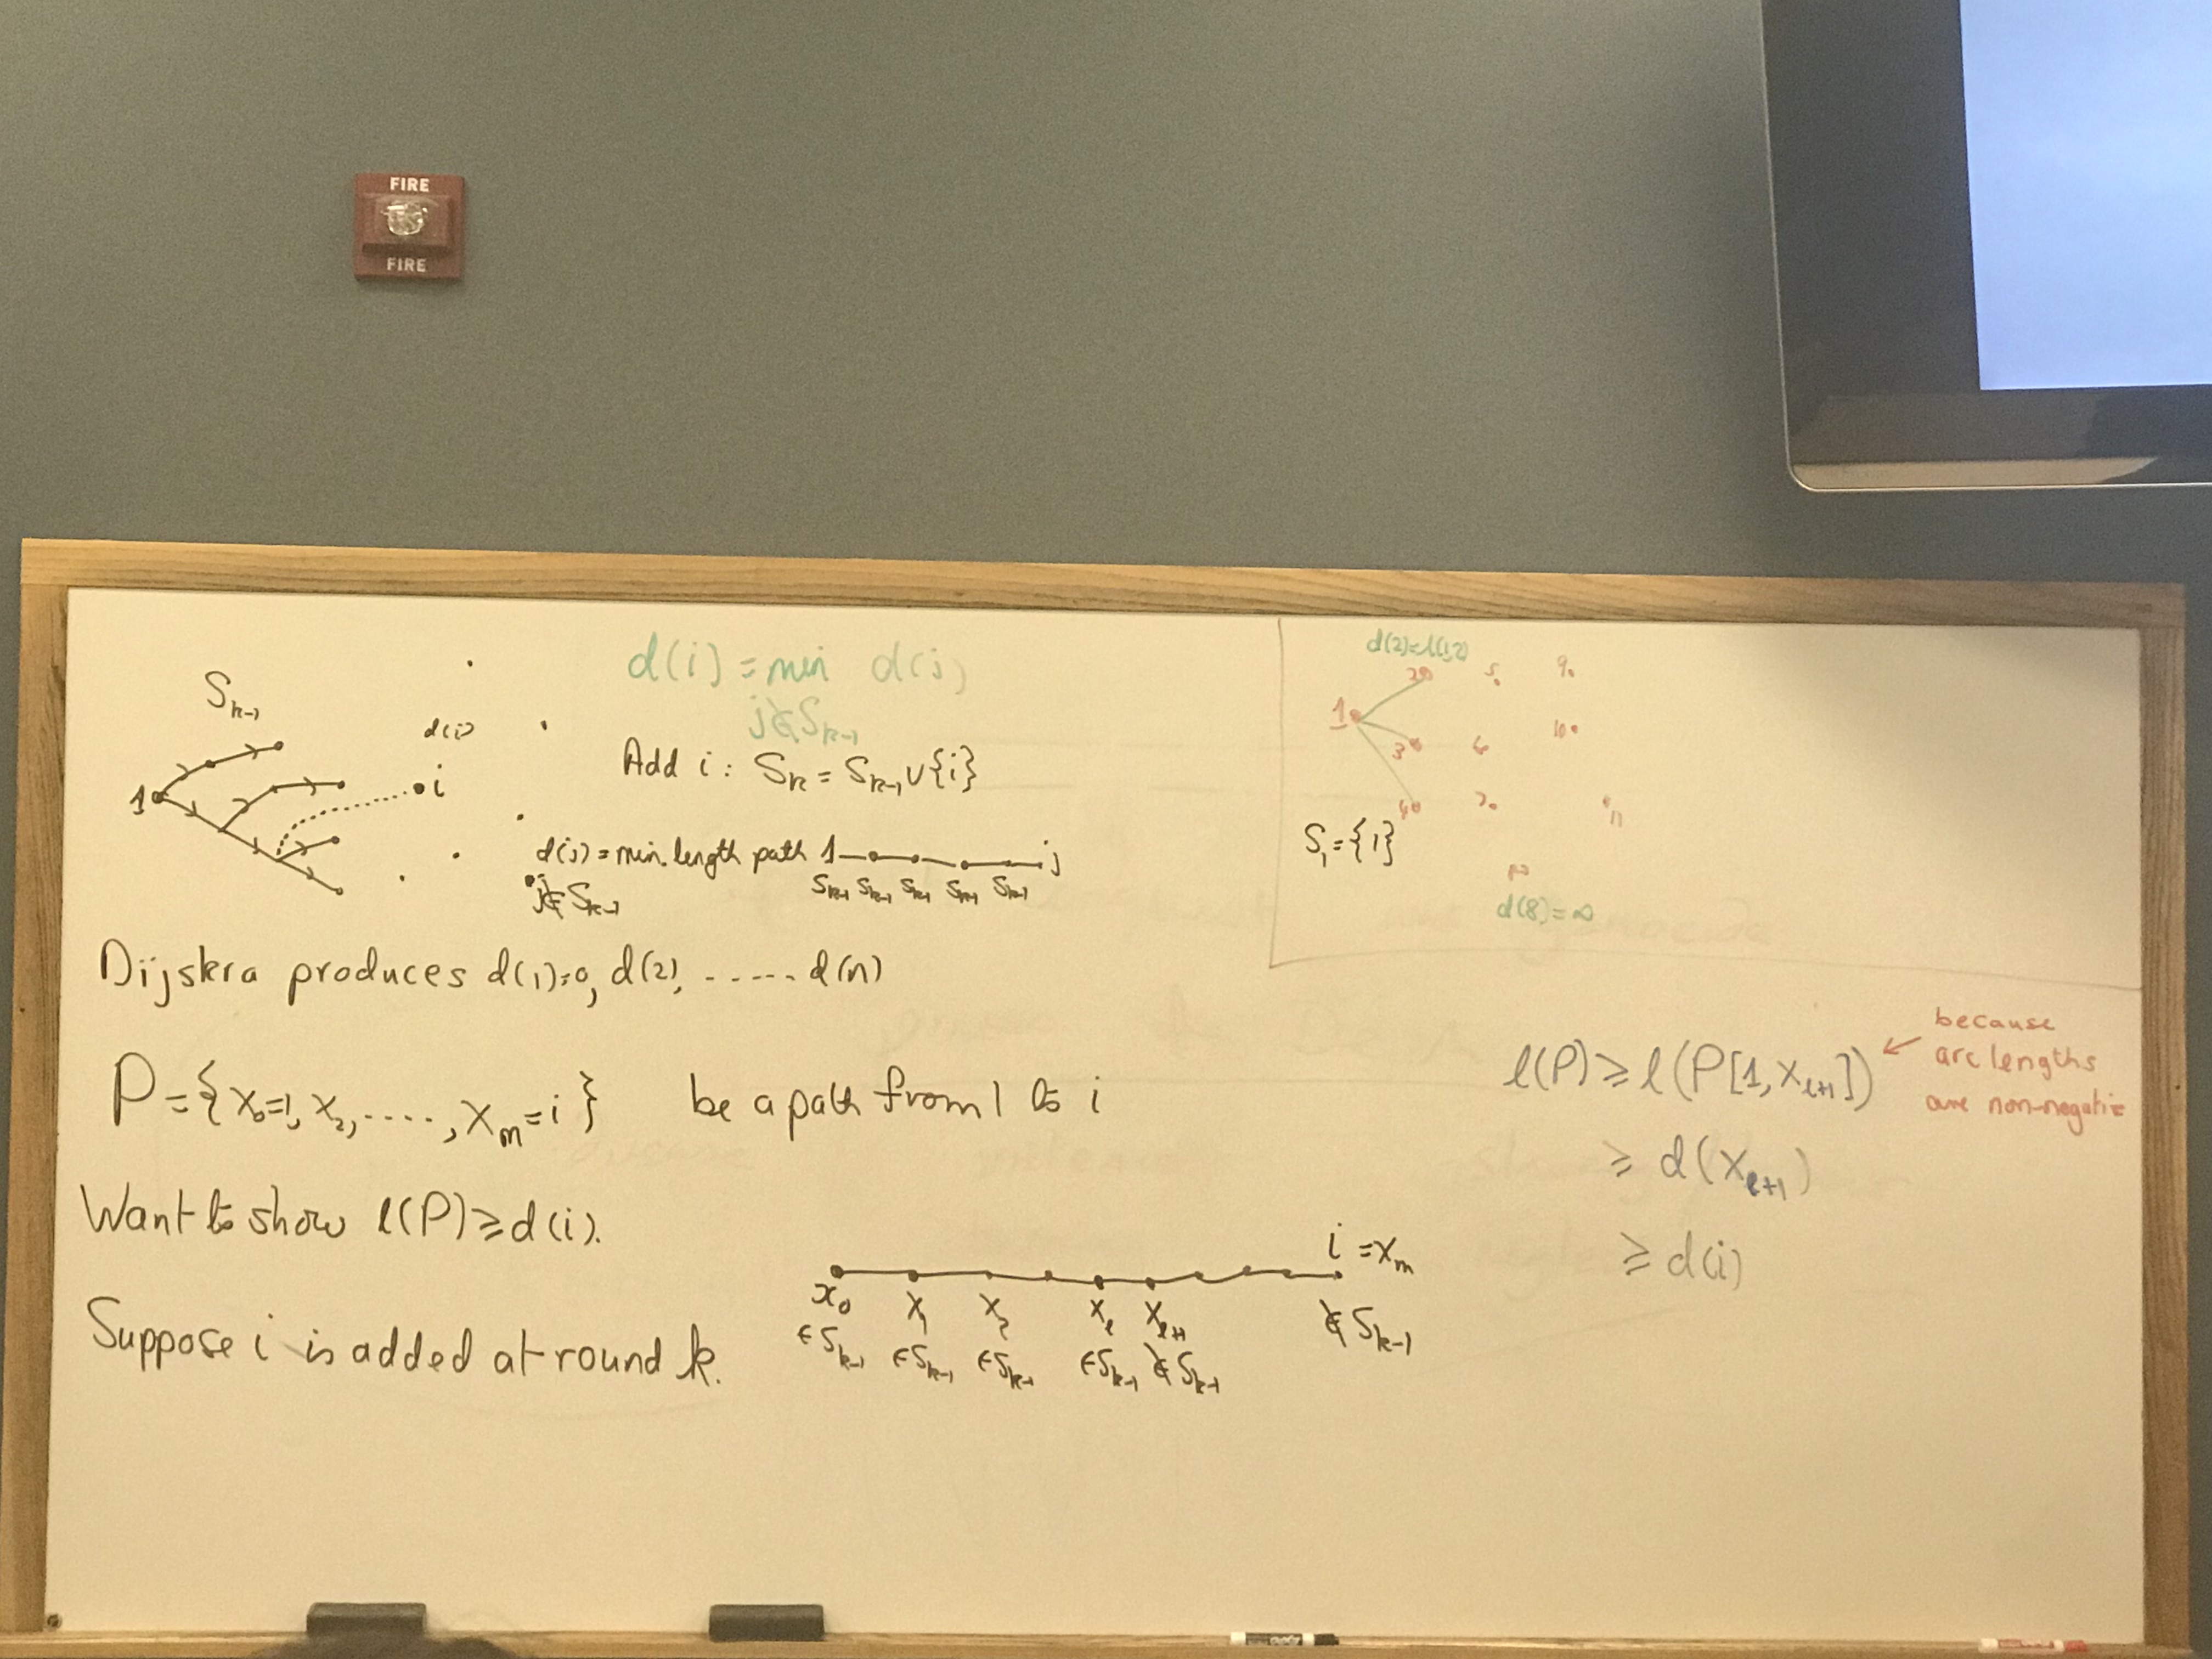 FIRE
FIRE
S_{k-1}
d(i)
1
i
d(i) = min d(j)
j∉S_{k-1}
Add i : S_k = S_{k-1} ∪ {i}
d(j) = min. length path 1 j
j∉S_{k-1}
S_{k-1} S_{k-1} S_{k-1} S_{k-1} S_{k-1}
d(2)=l(1,2)
1
2
3
4
5
6
7
9
10
11
S_1 = {1}
d(8)=∞
Dijskra produces d(1)=0, d(2), ...... d(n)
P = {x_0=1, x_2, ....., x_m = i } be a path from 1 to i
Want to show l(P) ≥ d(i).
Suppose i is added at round k.
i = x_m
x_0 x_1 x_2 x_l x_{l+1}
∈S_{k-1} ∈S_{k-1} ∈S_{k-1} ∈S_{k-1} ∉S_{k-1} ∉S_{k-1}
l(P) ≥ l(P[1,x_{l+1}])
≥ d(x_{l+1})
≥ d(i)
because
arc lengths
are non-negative